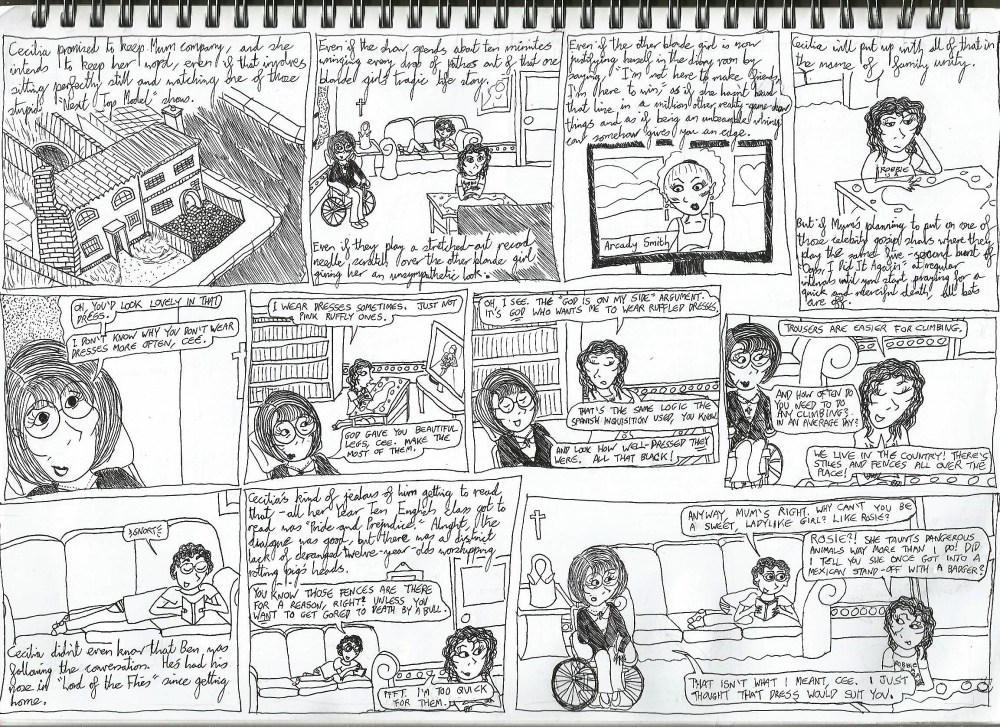 Cecilia promised to keep Mum company, and she
intends to keep her word, even if that involves
sitting perfectly still and watching one of those
stupid "Next Top Model" shows.
Even if the show spends about ten minutes
wringing every drop of pathos out of that one
blonde girl's tragic life story.
Even if they play a stretched-out record
needle scratch over the other blonde girl
giving her an unsympathetic look.
Even if the other blonde girl is now
justifying herself in the diary room by
saying, "I'm not here to make friends,
I'm here to win," as if she hasn't heard
that line in a million other reality-game-show
things and as if being an unbearable whiny
can somehow give you an edge.
Arcady Smith
Cecilia will put up with all of that in
the name of family unity.
ROBBIE
But if Mum's planning to put on one of
those celebrity gossip shows where they
play the same five-second burst of
"Oops, I Did It Again" at regular
intervals until you start praying for a
quick and merciful death, all bets
are off.
OH, YOU'D LOOK LOVELY IN THAT
DRESS.
I DON'T KNOW WHY YOU DON'T WEAR
DRESSES MORE OFTEN, CEE.
I WEAR DRESSES SOMETIMES. JUST NOT
PINK RUFFLY ONES.
GOD GAVE YOU BEAUTIFUL
LEGS, CEE. MAKE THE
MOST OF THEM.
OH, I SEE. THE "GOD IS ON MY SIDE" ARGUMENT.
IT'S GOD WHO WANTS ME TO WEAR RUFFLED DRESSES.
THAT'S THE SAME LOGIC THE
SPANISH INQUISITION USED, YOU KNOW.
AND LOOK HOW WELL-DRESSED THEY
WERE. ALL THAT BLACK!
TROUSERS ARE EASIER FOR CLIMBING.
AND HOW OFTEN DO
YOU NEED TO DO
ANY CLIMBING?
IN AN AVERAGE DAY?
WE LIVE IN THE COUNTRY! THERE'S
STILES AND FENCES ALL OVER THE
PLACE!
*SNORT*
Cecilia didn't even know that Ben was
following the conversation. He's had his
nose in "Lord of the Flies" since getting
home.
Cecilia's kind of jealous of him getting to read
that - all her Year Ten English class got to
read was "Pride and Prejudice." Alright, the
dialogue was good, but there was a distinct
lack of deranged twelve-year-olds worshipping
rotting pig's heads.
YOU KNOW THOSE FENCES ARE THERE
FOR A REASON, RIGHT? UNLESS YOU
WANT TO GET GORED TO DEATH BY A BULL.
PFFT. I'M TOO QUICK
FOR THEM.
ANYWAY, MUM'S RIGHT. WHY CAN'T YOU BE
A SWEET, LADYLIKE GIRL? LIKE ROSIE?
ROSIE?! SHE TAUNTS DANGEROUS
ANIMALS WAY MORE THAN I DO! DID
I TELL YOU SHE ONCE GOT INTO A
MEXICAN STAND-OFF WITH A BADGER?
ROBBIE
THAT ISN'T WHAT I MEANT, CEE. I JUST
THOUGHT THAT DRESS WOULD SUIT YOU.